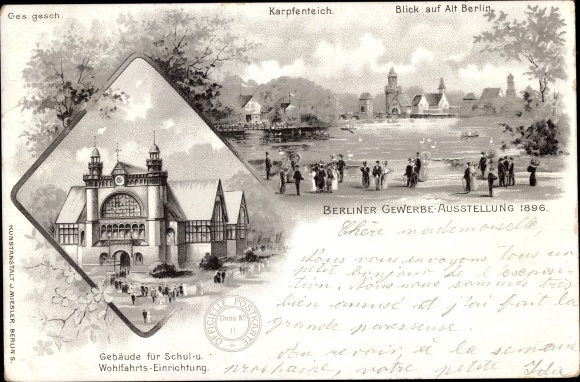 Ges. gesch.
Karpfenteich.
Blick auf Alt Berlin.
BERLINER GEWERBE-AUSSTELLUNG 1896.
Chère mademoiselle,
Nous vous envoyons tous un
petit bonjour de l'exposi-
tion. Nous nous sommes très
bien amusé et j'ai fait la
grande paresseuse.
Au revoir a la semaine
prochaine, votre petite Ida
OFFICIELLE POSTKARTE
Dess. No.
11
Gebäude für Schul-u.
Wohlfahrts-Einrichtung.
KUNSTANSTALT J. MIESLER, BERLIN S.